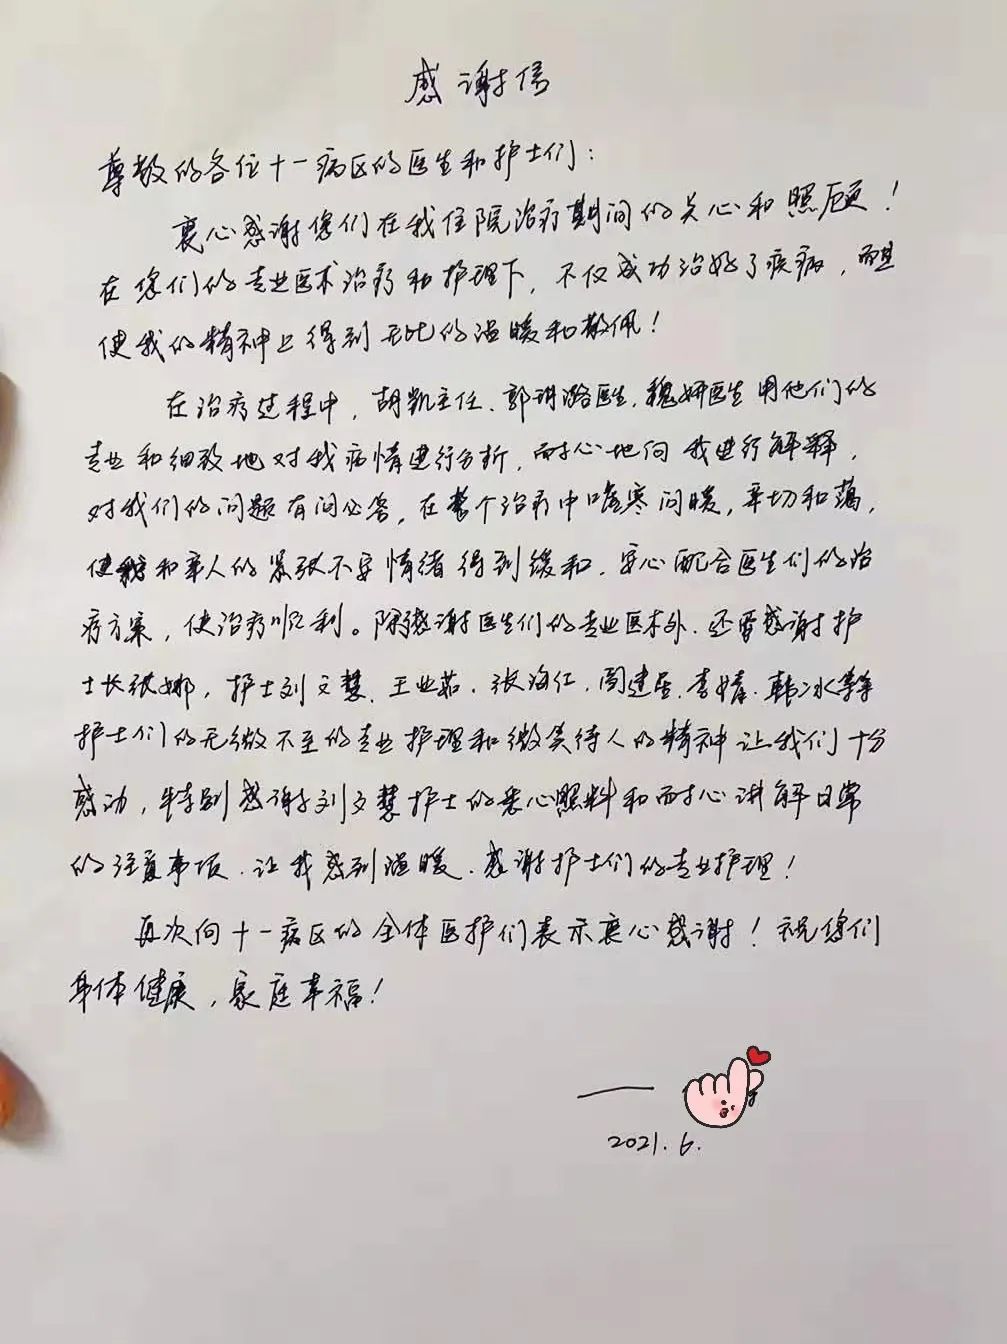 感谢信
尊敬的各位十一病区的医生和护士们：
衷心感谢您们在我住院治疗期间的关心和照顾！
在您们的专业医术治疗和护理下，不仅成功治好了疾病，而且
使我的精神上得到无比的温暖和敬佩！
在治疗过程中，胡凯主任、郭琪璐医生、魏妍医生用他们的
专业和细致地对我病情进行分析，耐心地向我进行解释，
对我们的问题有问必答，在整个治疗中嘘寒问暖，亲切和蔼，
使我和亲人的紧张不安情绪得到缓和，安心配合医生们的治
疗方案，使治疗顺利。除感谢医生们的专业医术外，还要感谢护
士长张娜，护士刘文慧、王业茹、张海仁、周建蕾、李婧、韩冰等等
护士们的无微不至的专业护理和微笑待人的精神让我们十分
感动，特别感谢刘文慧护士的悉心照料和耐心讲解日常
的注意事项，让我感到温暖，感谢护士们的专业护理！
再次向十一病区的全体医护们表示衷心感谢！祝您们
身体健康，家庭幸福！
——
2021.6.